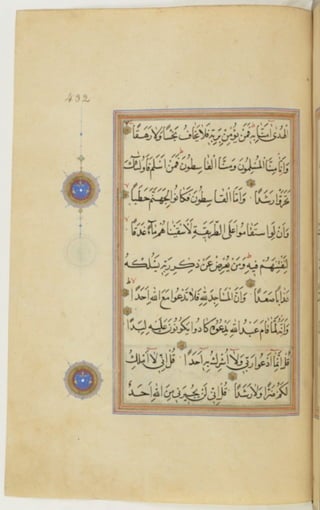 432
الهدى امنا به فمن يؤمن بربه فلا يخاف بخسا ولا رهقا
وانا منا المسلمون ومنا القاسطون فمن اسلم فاولئك
تحروا رشدا وانا القاسطون فكانوا لجهنم حطبا
وان لو استقاموا على الطريقة لاسقيناهم ماء غدقا
لنفتنهم فيه ومن يعرض عن ذكر ربه يسلكه
عذابا صعدا وان المساجد لله فلا تدعوا مع الله احدا
وانه لما قام عبد الله يدعوه كادوا يكونون عليه لبدا
قل انما ادعوا ربي ولا اشرك به احدا قل اني لا املك
لكم ضرا ولا رشدا قل اني لن يجيرني من الله احد